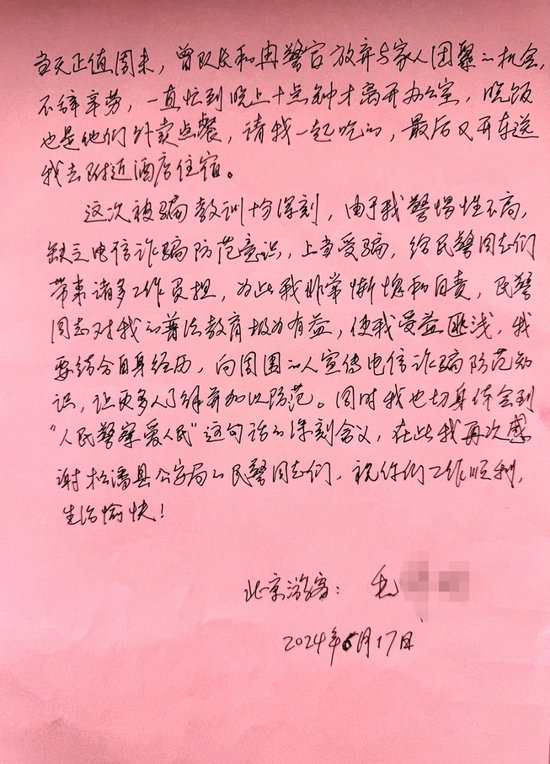 当天正值周末，曾队长和冉警官放弃与家人团聚的机会，
不辞辛劳，一直忙到晚上十点钟才离开办公室，晚饭
也是他们外卖点餐，请我一起吃的，最后又开车送
我去附近酒店住宿。
这次被骗教训十分深刻，由于我警惕性不高，
缺乏电信诈骗防范意识，上当受骗，给民警同志们
带来诸多工作负担，为此我非常惭愧和自责，民警
同志对我的普法教育极为有益，使我受益匪浅，我
要结合自身经历，向周围的人宣传电信诈骗防范知
识，让更多人了解并加以防范。同时我也切身体会到
“人民警察爱人民”这句话的深刻含义，在此我再次感
谢松潘县公安局的民警同志们，祝你们工作顺利，
生活愉快！
北京游客：
2024年6月17日